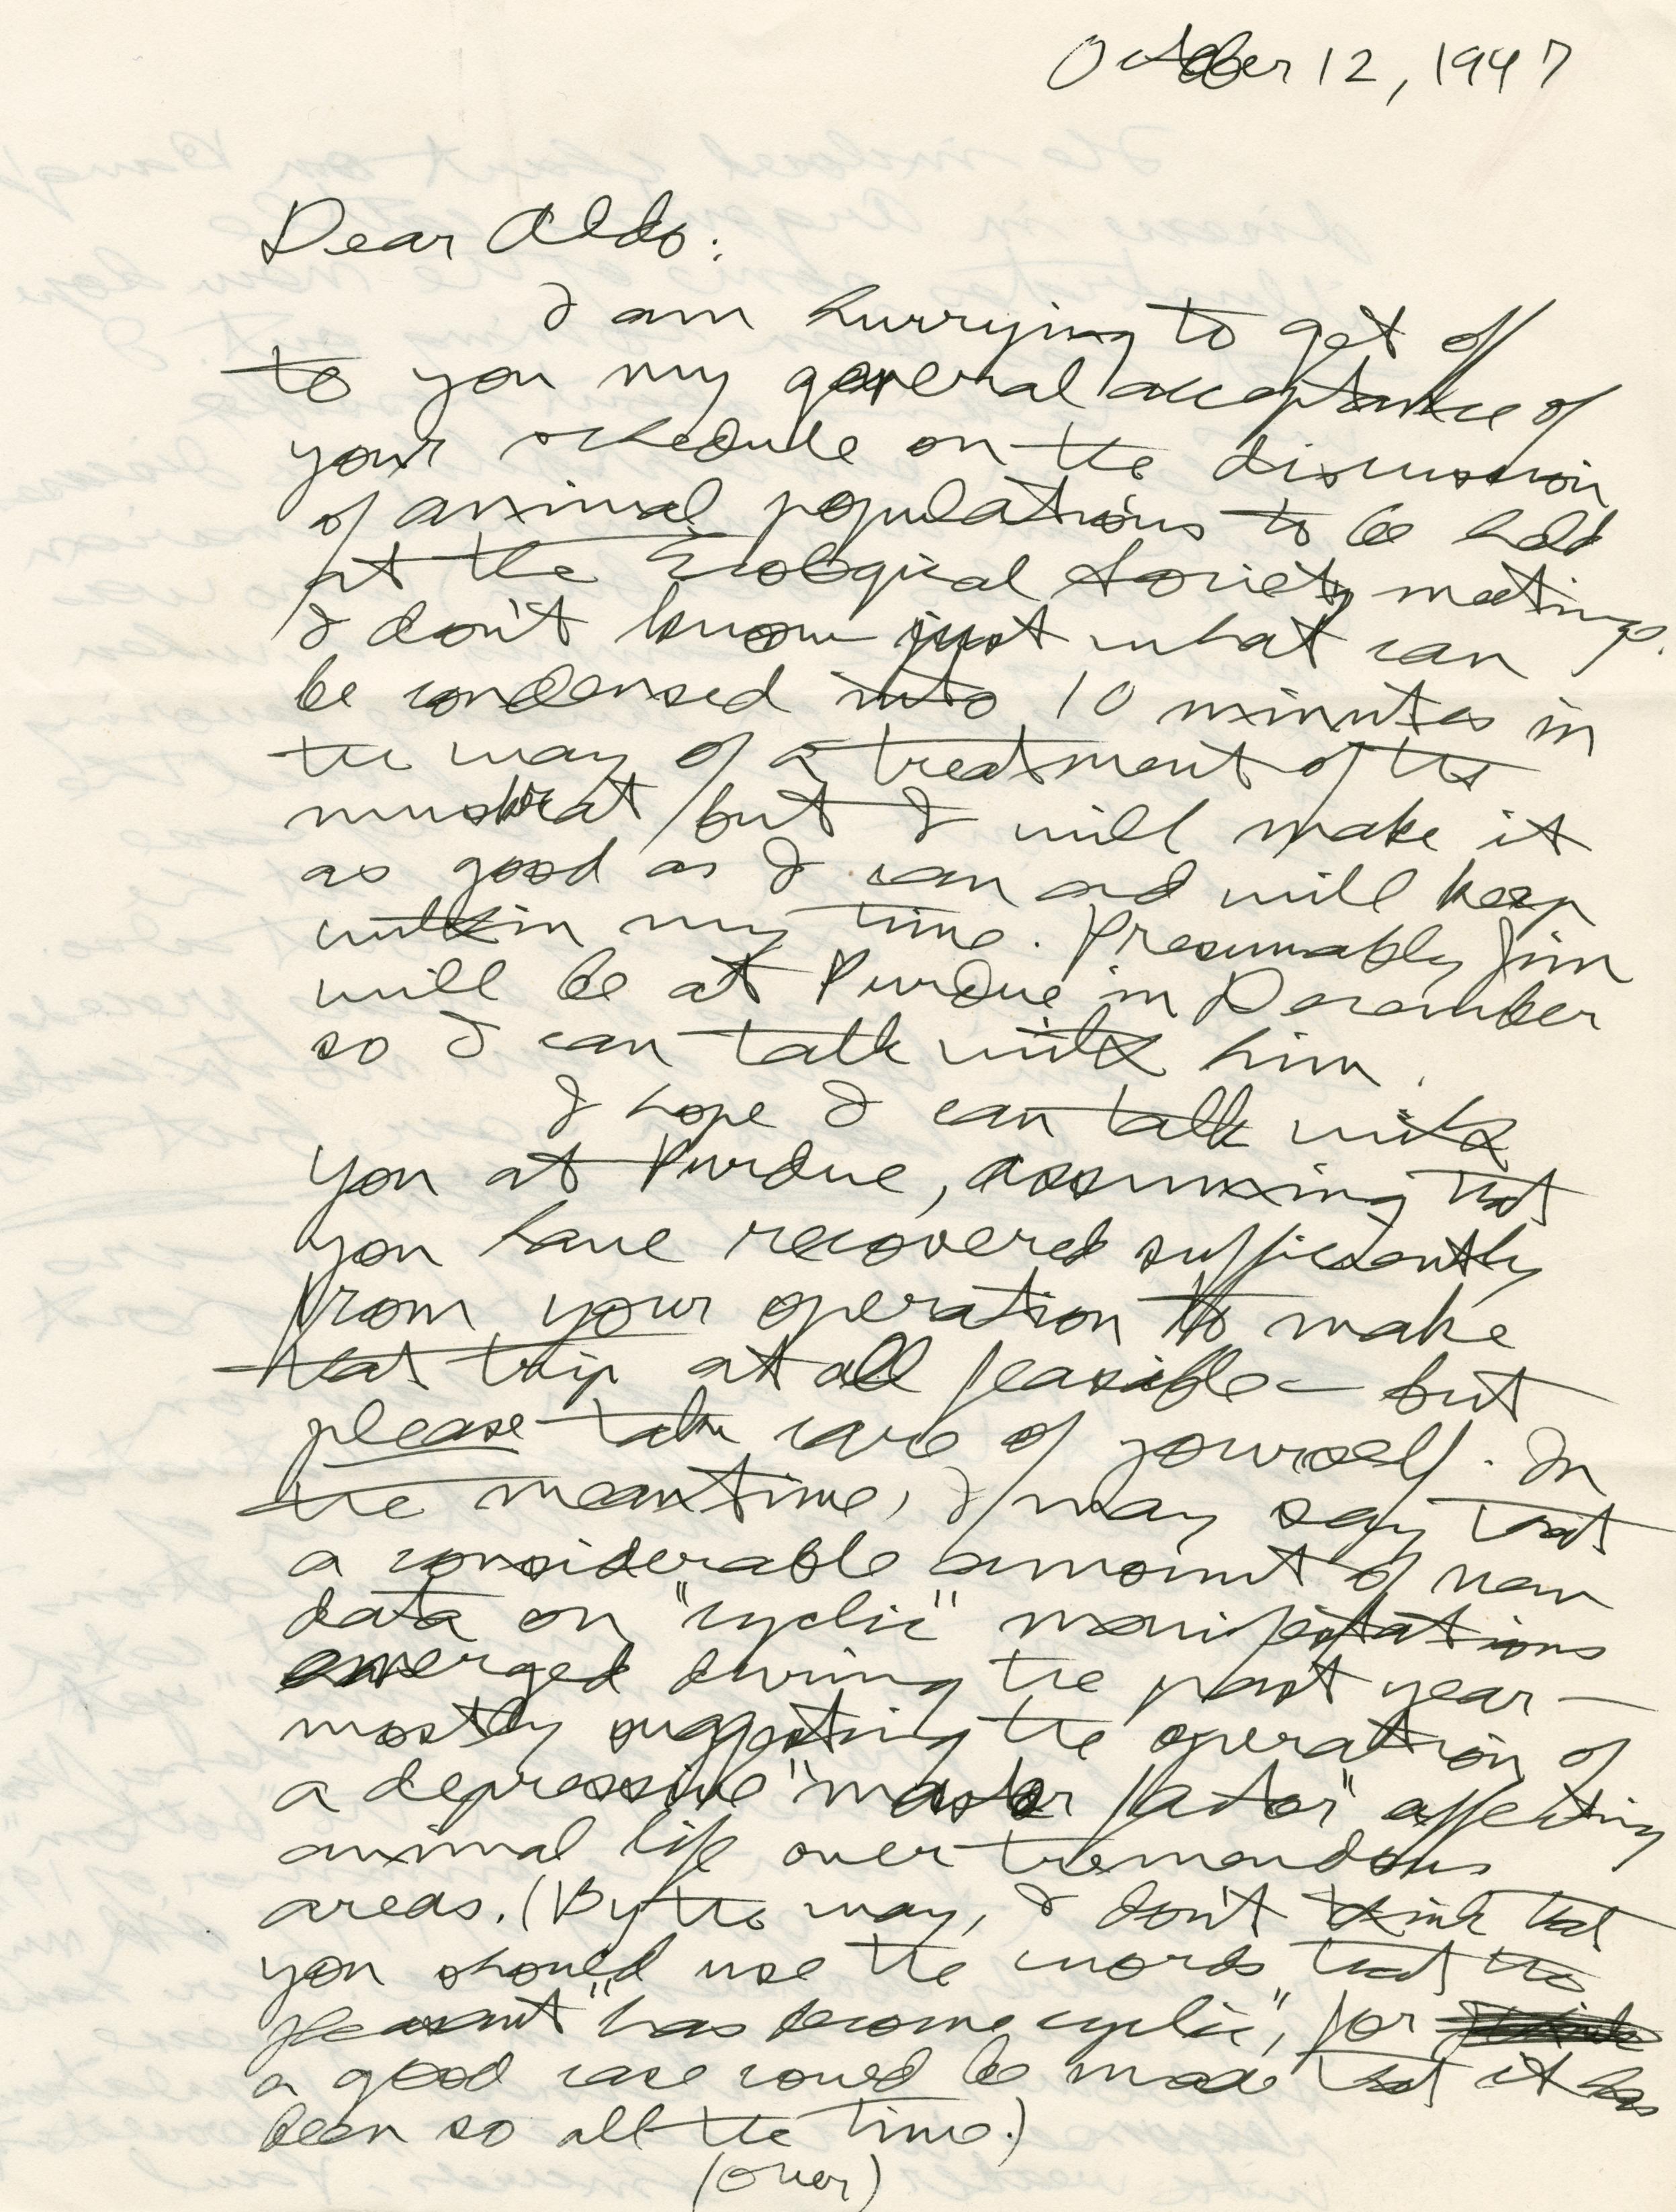 October 12, 1947
Dear Aldo:
I am hurrying to get off
to you my general acceptance of
your schedule on the discussion
of animal populations to be held
at the Ecological Society meetings.
I don't know just what can
be condensed into 10 minutes in
the way of a treatment of the
muskrat but I will make it
as good as I can and will keep
within my time. Presumably Jim
will be at Purdue in December
so I can talk with him.
I hope I can talk with
you at Purdue, assuming that
you have recovered sufficiently
from your operation to make
that trip at all feasible — but
please take care of yourself. In
the meantime, I may say that
a considerable amount of new
data on "cyclic" manifestations
emerged during the past year —
mostly suggesting the operation of
a depressive "master factor" affecting
animal life over tremendous
areas. (By the way, I don't think that
you should use the words that the
pheasant "has become cyclic", for
a good case could be made that it has
been so all the time.)
(over)